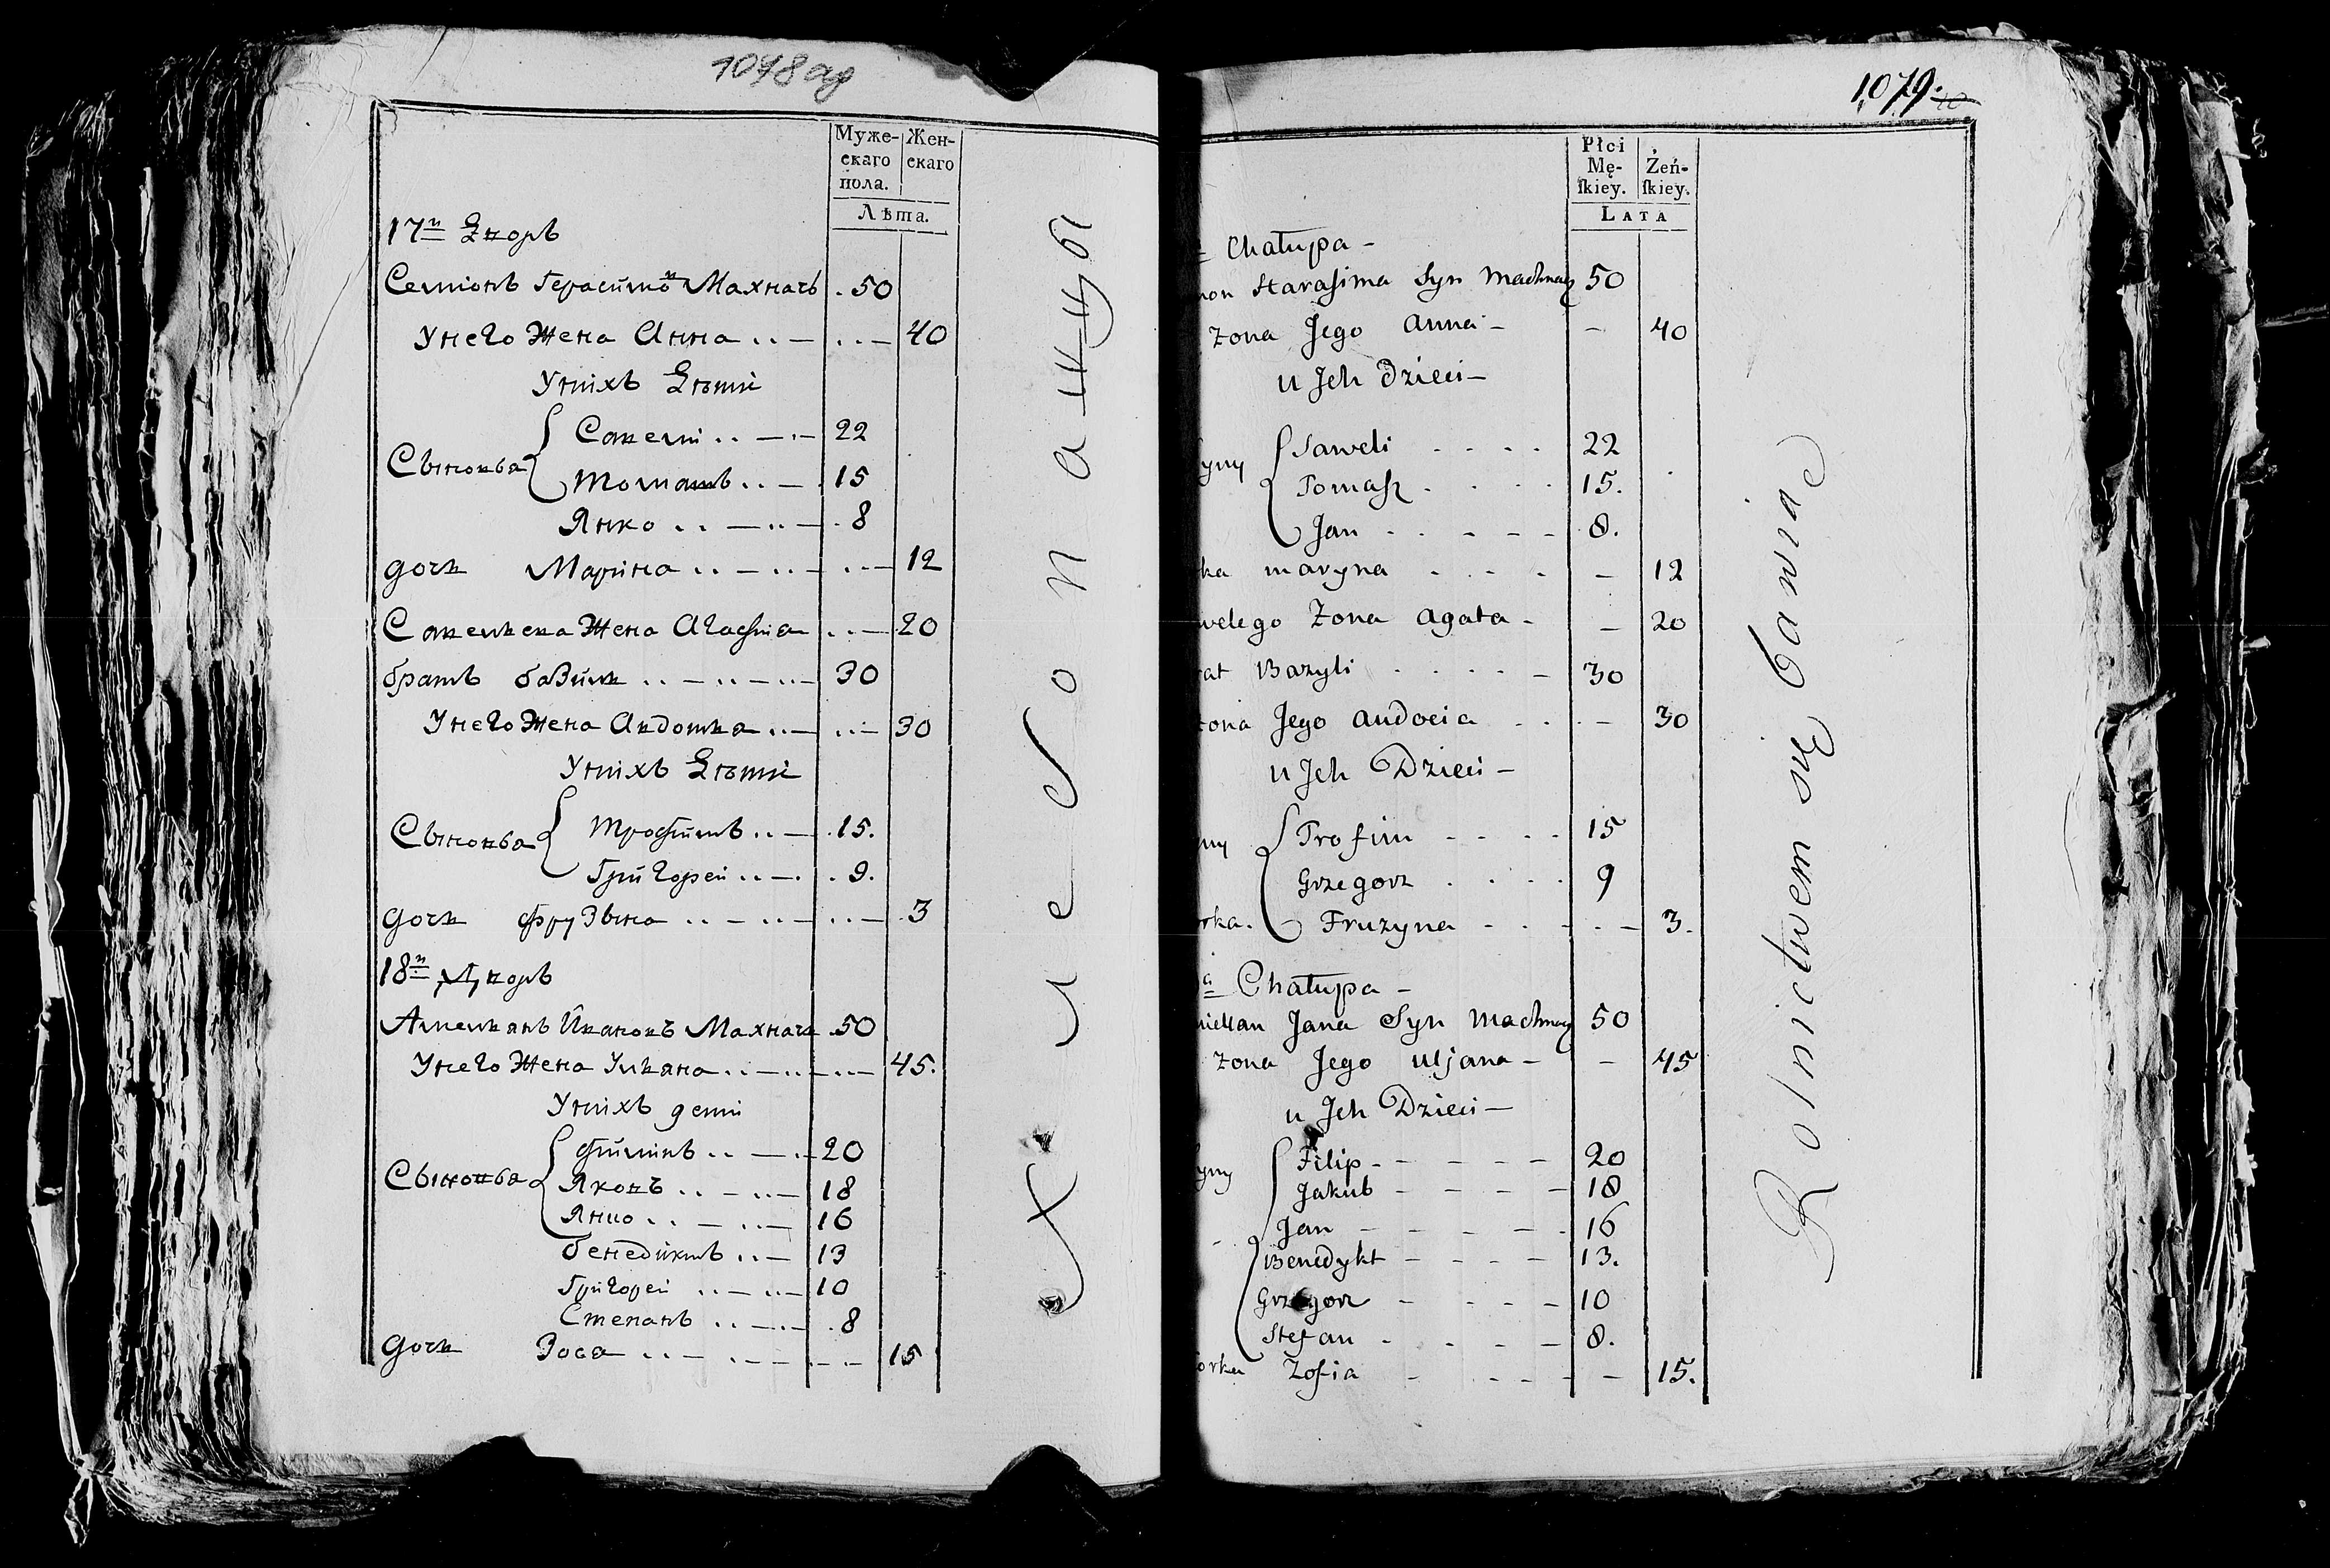 1078 од
Муже-
скаго
пола.
Жен-
скаго
Лѣта.
17й Дворъ
Семіонъ Герасимов Махначъ 50
Унего Жена Анна 40
Унихъ Дѣти
Сыновья
Савели 22
Томашъ 15
Янко 8
дочь Марина 12
Савельева Жена Агафия 20
братъ базиль 30
Унего Жена Авдотья 30
Унихъ Дѣти
Сыновья
Трофимъ 15.
Григорей 9.
дочь Фрузына 3
18й Дворъ
Амельянъ Ивановъ Махначъ 50
Унего Жена Ульяна 45.
Унихъ дети
Сыновья
Филипъ 20
Яковъ 18
Янко 16
бенедиктъ 13
Григорей 10
Степанъ 8
дочь Зося 15
Хлебопашцы
1079.
Płci
Mę-
ſkiey.
Żeń-
ſkiey.
LATA
Chałupa -
Harasima Syn Machnacz 50
Zona Jego Anna - 40
u Jch dzieci -
Saweli 22
Tomasz 15.
Jan 8.
maryna 12
Zona agata - 20
Bazyli 30
Jego audocia 30
u Jch Dzieci -
Trofim 15
Grzegorz 9
Fruzyna 3.
Chałupa -
Jana Syn Machnacz 50
Zona Jego uljana - 45
u Jch Dzieci -
Filip 20
Jakub 18
Jan 16
Benedykt 13.
Grzegorz 10
Stefan 8.
Zofia 15.
Rolnictwem się bawią